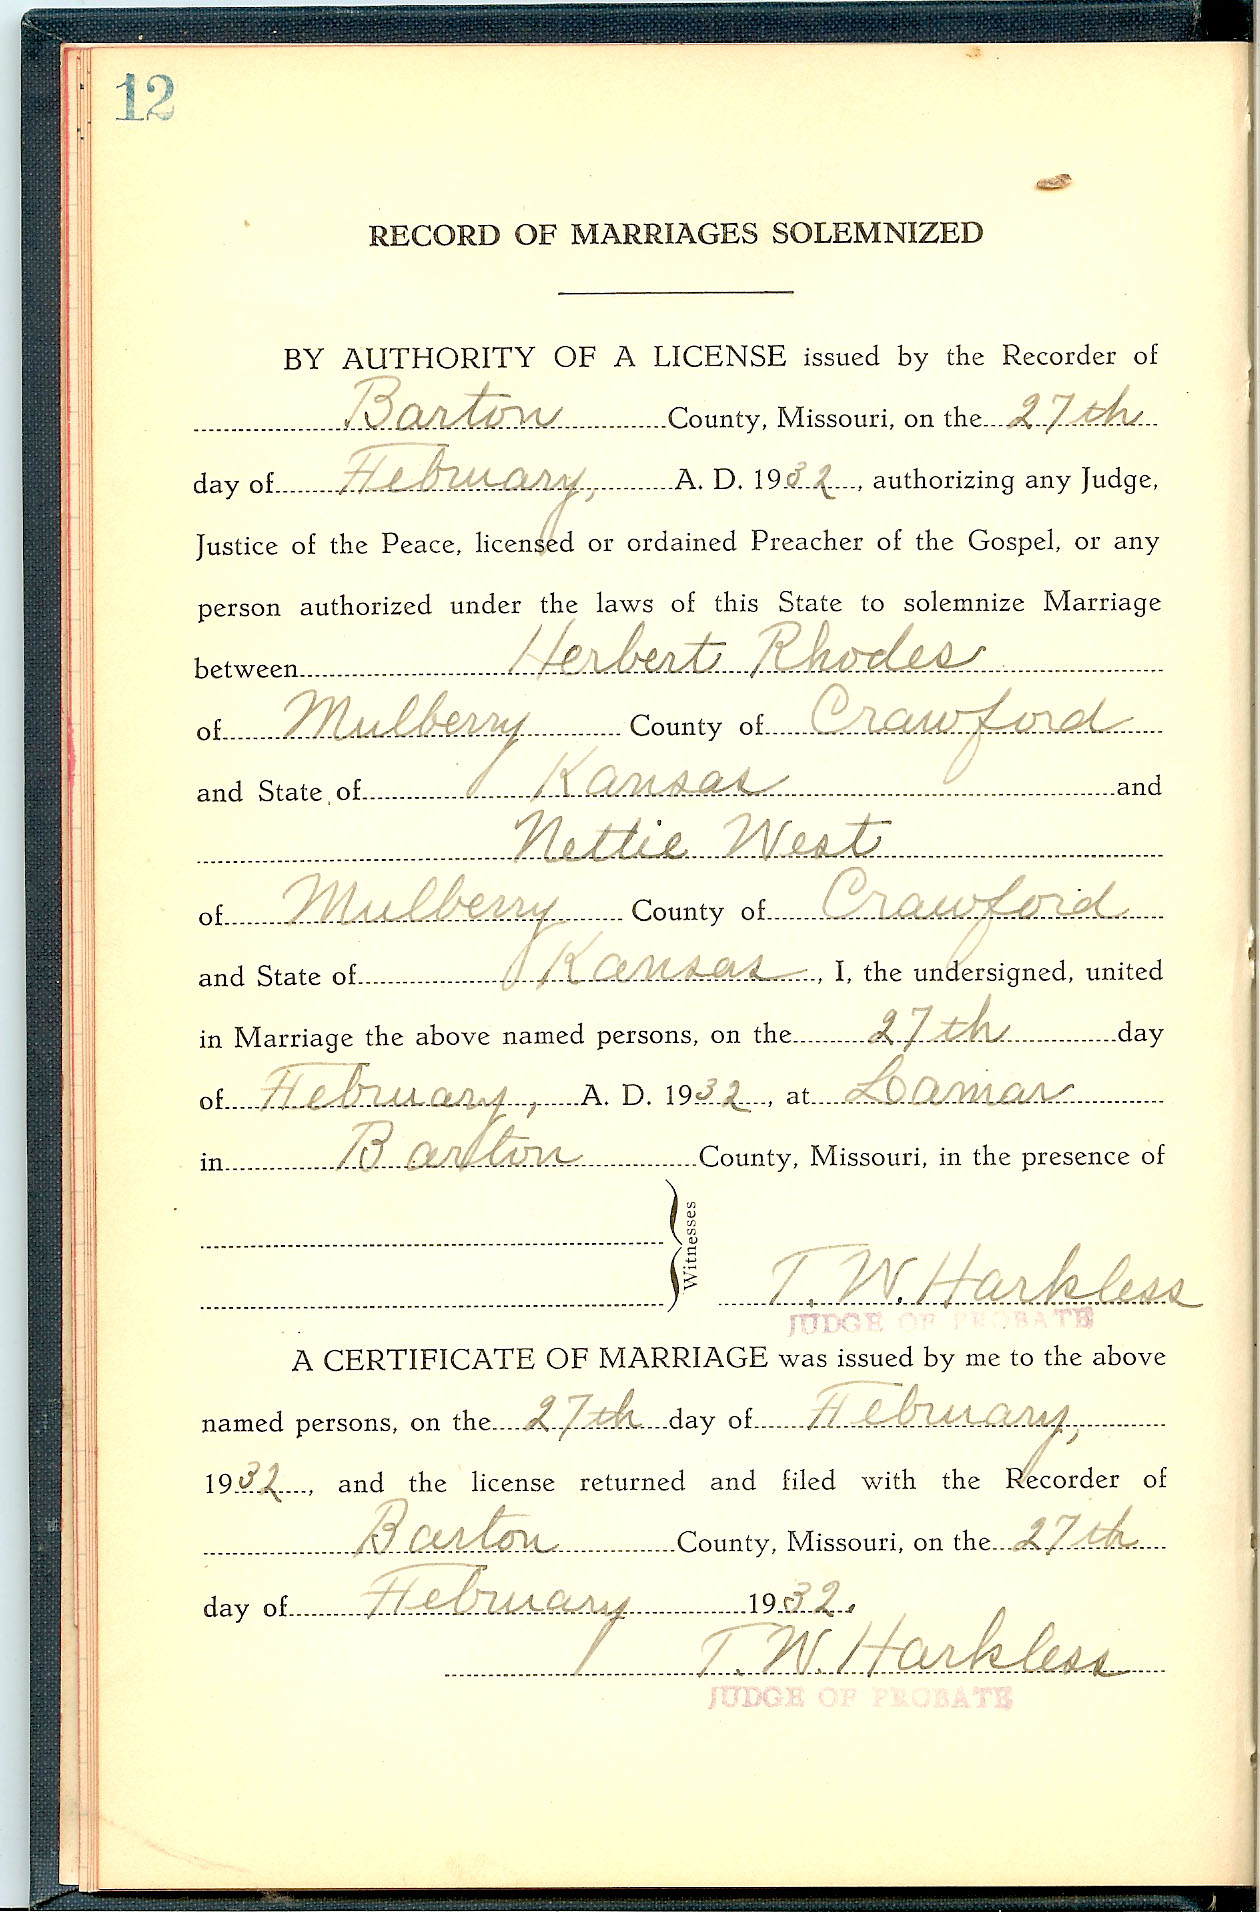 12
RECORD OF MARRIAGES SOLEMNIZED
BY AUTHORITY OF A LICENSE issued by the Recorder of
Barton County, Missouri, on the 27th
day of February, A. D. 1932, authorizing any Judge,
Justice of the Peace, licensed or ordained Preacher of the Gospel, or any
person authorized under the laws of this State to solemnize Marriage
between Herbert Rhodes
of Mulberry County of Crawford
and State of Kansas and
Nettie West
of Mulberry County of Crawford
and State of Kansas, I, the undersigned, united
in Marriage the above named persons, on the 27th day
of February, A. D. 1932, at Lamar
in Barton County, Missouri, in the presence of
Witnesses
T. W. Harkless
JUDGE OF PROBATE
A CERTIFICATE OF MARRIAGE was issued by me to the above
named persons, on the 27th day of February,
1932, and the license returned and filed with the Recorder of
Barton County, Missouri, on the 27th
day of February 1932.
T. W. Harkless
JUDGE OF PROBATE